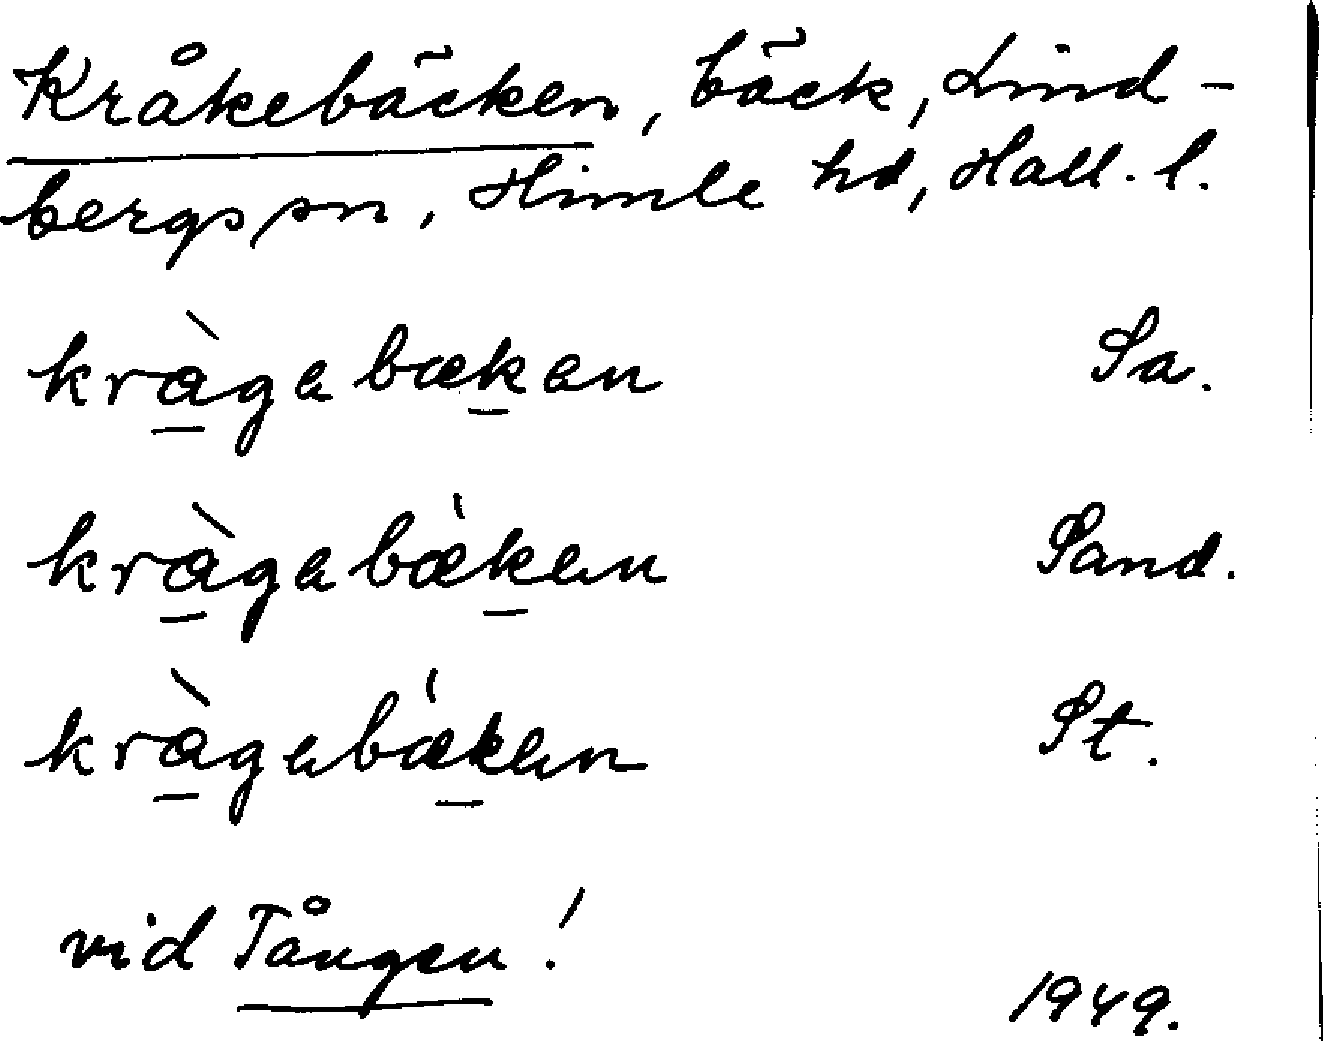 Kråkebäcken, bäck, Lind-
bergs sn, Himle hd, Hall. l.
kràgabækan Sa.
kràgabækan Sand.
kràgabækan St.
vid Tången!
1949.